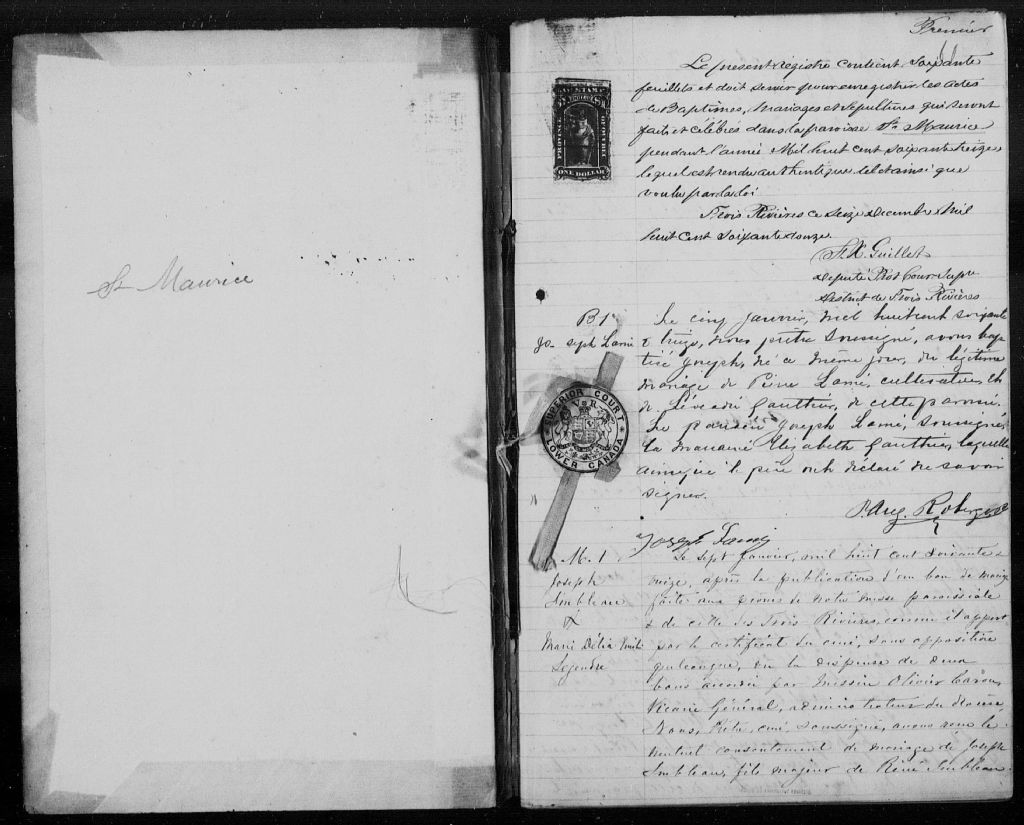 St Maurice
Premier
Le présent registre contient soixante
feuillets et doit servir pour enregistrer les actes
de Baptêmes, Mariages et Sépultures qui seront
faits et célébrés dans la paroisse St Maurice
pendant l'année Mil huit cent soixante treize
lequel est rendu authentique tel et ainsi que
voulu par la loi
Trois Rivières ce seize decembre Mil
huit cent soixante douze
Guillet
Deputé Prot Cour Supre
District de Trois Rivières
ONE DOLLAR
SUPERIOR COURT
V R
LOWER CANADA
B1
Joseph Lami
Le cinq Janvier, mil huit cent soixante
& treize, nous prêtre soussigné, avons bap
tisé Joseph, né ce même jour, du légitime
mariage de Lami, cultivateur, &
de Gauthier, de cette paroisse.
Le parrain Joseph Lami, soussigné,
la marraine Elizabeth Gauthier, laquelle
ainsi que le père ont déclaré ne savoir
signer.
Joseph Lami
M. 1
Joseph
&
Marie Délia
Legendre
Le sept Janvier, mil huit cent soixante &
treize, après la publication d'un ban de mariage
faite aux prones de notre messe paroissiale
& de celle des Trois Rivières, comme il appert
par le certificat du curé, sans opposition
quelconque, vu la dispense de deux
bans accordée par messire Olivier Caron,
Vicaire Général, administrateur du diocèse
Nous, Ptre, curé, soussigné, avons reçu le
mutuel consentement de mariage de Joseph
fils majeur de René